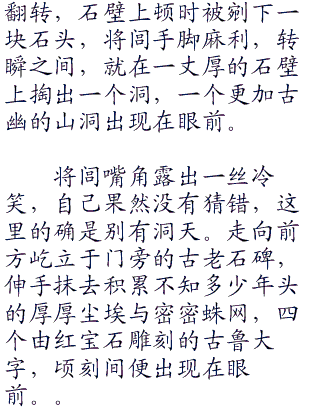 翻转，石壁上顿时被剜下一
块石头，将闾手脚麻利，转
瞬之间，就在一丈厚的石壁
上掏出一个洞，一个更加古
幽的山洞出现在眼前。
将闾嘴角露出一丝冷
笑，自己果然没有猜错，这
里的确是别有洞天。走向前
方屹立于门旁的古老石碑，
伸手抹去积累不知多少年头
的厚厚尘埃与密密蛛网，四
个由红宝石雕刻的古鲁大
字，顷刻间便出现在眼
前。。